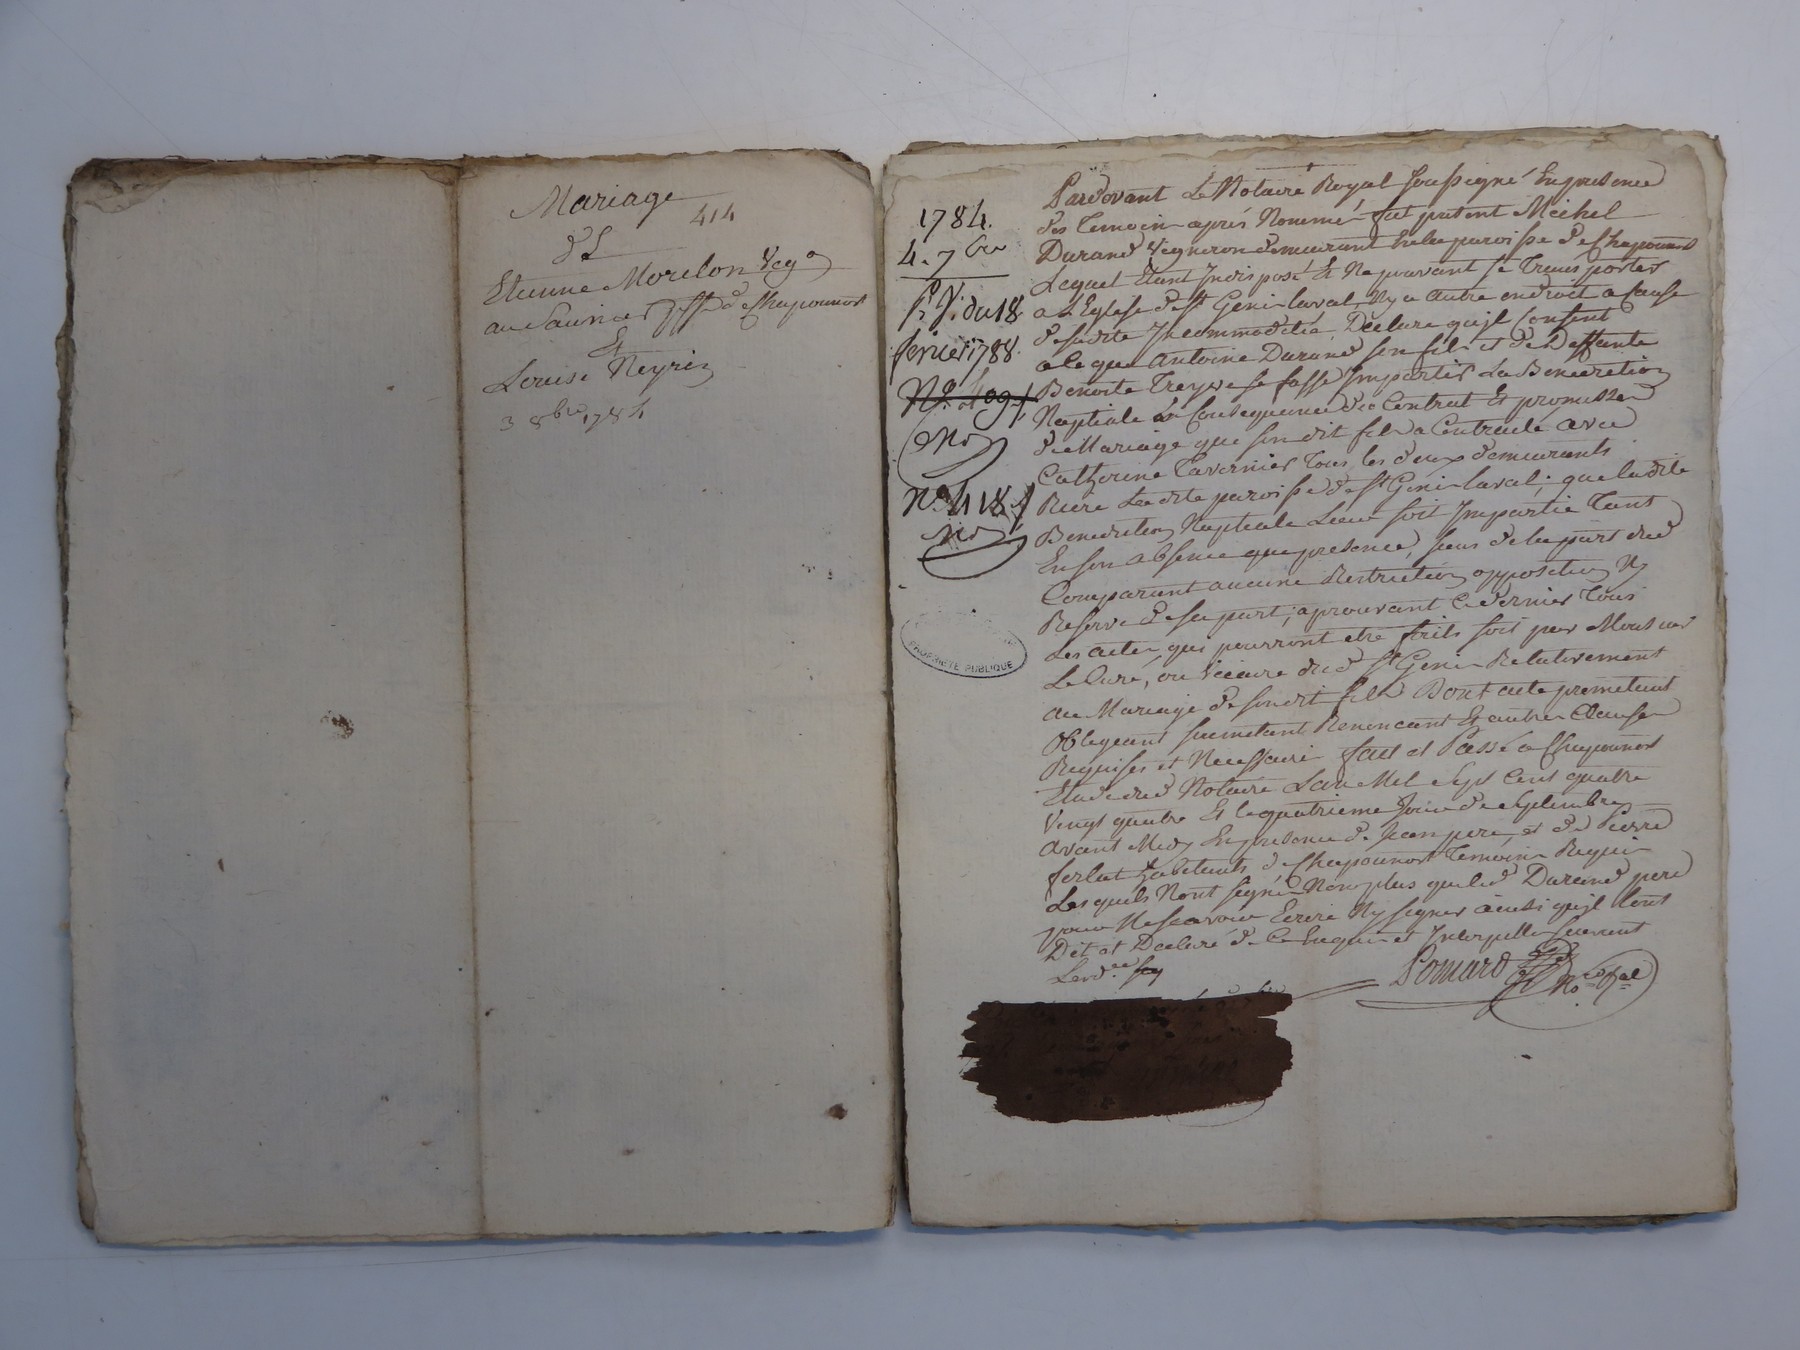 Mariage
414
d'E
Etienne Morelon Vego
au Saunier psse de Chaponnost
Et
Louise Neyrin
3 8bre 1784
1784.
4. 7bre
du 18
fevrier 1788.
No. 409
No. 418
PROPRIETE PUBLIQUE
Pardevant Le Notaire Royal soussigné En presence
des Temoins après Nommés fut present Michel
Durand Vigneron demeurant En la paroisse de Chaponnost
Lequel Etant Indisposé Et Ne pouvant se Transporter
a L'Eglise de St Genis laval Ny a autre endroit a Cause
de sadite Incommodité, Declare qu'il Consent
a ce que Antoine Durand son fils et de Deffunte
Benoite Treyve se fasse Impartir La Benediction
Nuptiale En Consequence du Contrat Et promesse
de Mariage que son dit fils a Contracté avec
Catherine Tavernier Tous les deux demeurants
Riere Ladite paroisse de St Genis laval; que ladite
Benediction Nuptiale Leur soit Impartie Tant
En son absence que presence, sans de la part dud
Comparant aucune Restriction opposition Ny
Reserve de sa part; aprouvant Ce dernier Tous
Les actes qui pourront etre faits soit par Monsieur
Le Curé, ou Vicaire dud St Genis Relativement
au Mariage de son dit fils Dont acte promettant
Obligeant soumetant Renoncant Et autres Clauses
Requises et Necessaire fait et Passé a Chaponnost
Etude dud Notaire L'an Mil sept Cent quatre
Vingt quatre Et le quatrieme Jour de Septembre
avant Midy En presence de Jean pere, et de Pierre
ferlat habitants de Chaponnost Temoins Requis
Lesquels N'ont signé Non plus que led Durand pere
pour Ne scavoir Ecrire Ny signer ainsi qu'il L'ont
Dit et Declaré de Ce Enquis et Interpellé suivant
Lord.ce
Ponnard